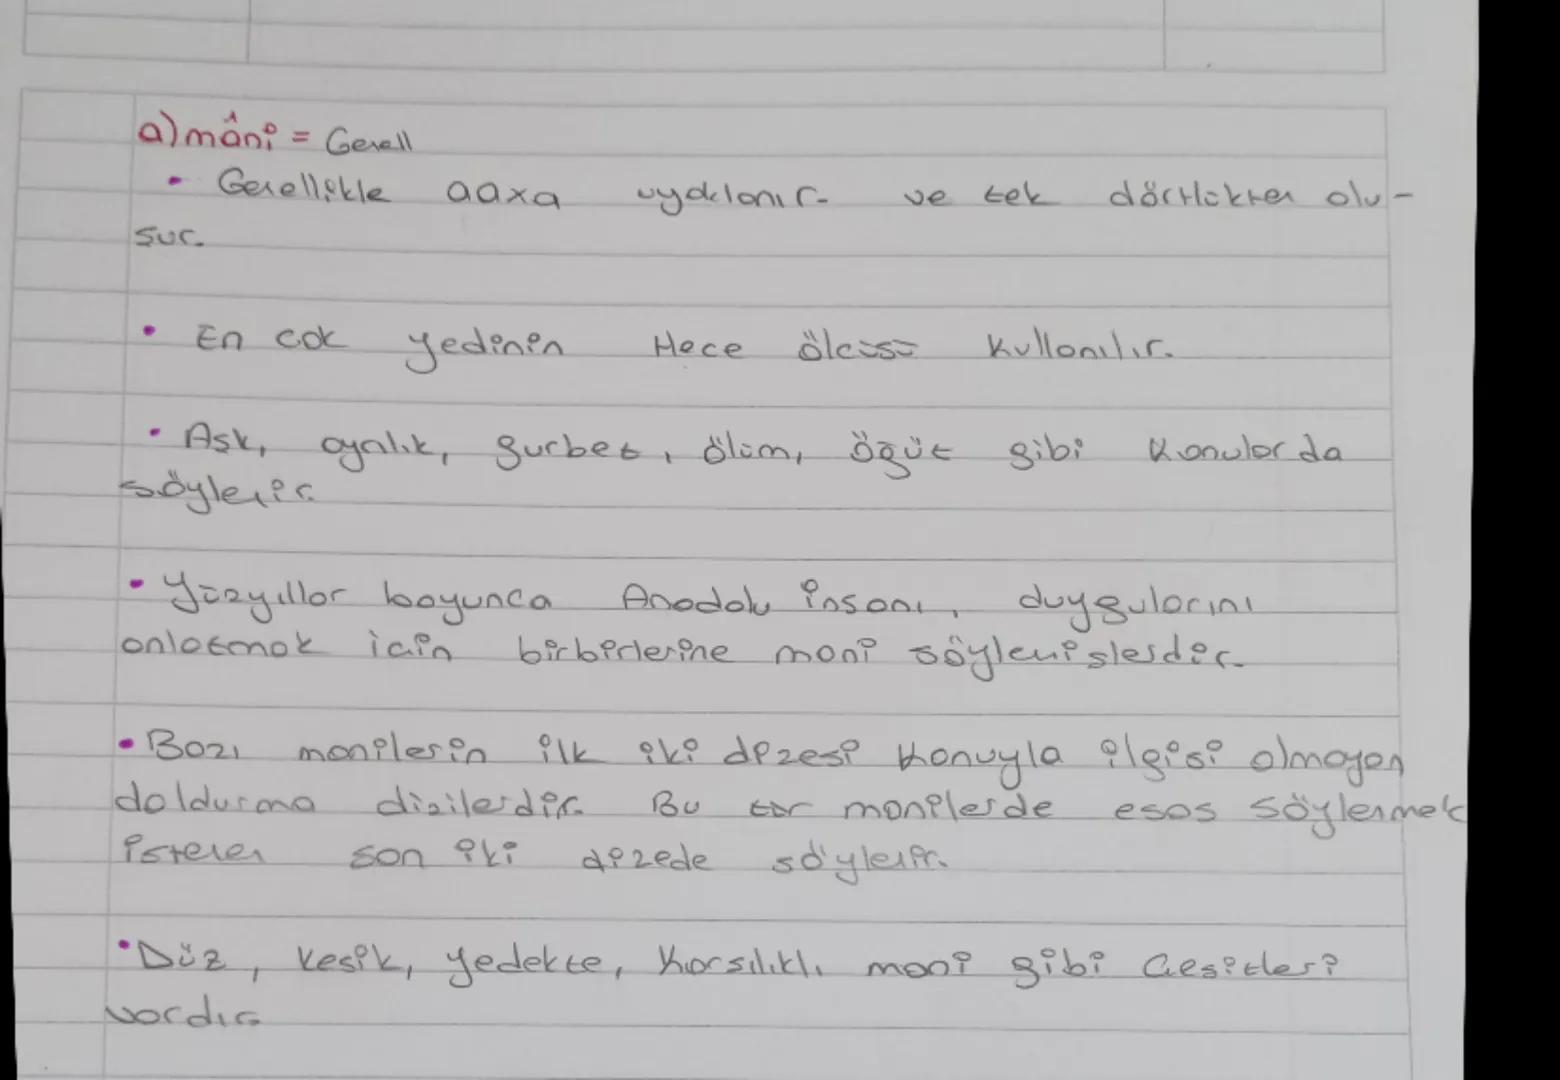 a) mâni = Genell
• Genellikle aaxa uyaklanır. ve tek dörtlükten olu-
şur.
• En çok yedinin Hece ölçüsü kullanılır.
• Aşk, ayrılık, gurbet, ölüm, öğüt gibi konularda
söylenir.
• Yüzyıllar boyunca Anadolu insanı, duygularını
anlatmak için birbirlerine mani söylemişlerdir.
• Bazı manilerin ilk iki dizesi konuyla ilgisi olmayan
doldurma dizilerdir. Bu tür manilerde esas söylenmek
istenen son iki dizede söylenir.
• Düz, kesik, yedekte, karşılıklı mani gibi çeşitleri
vardır.